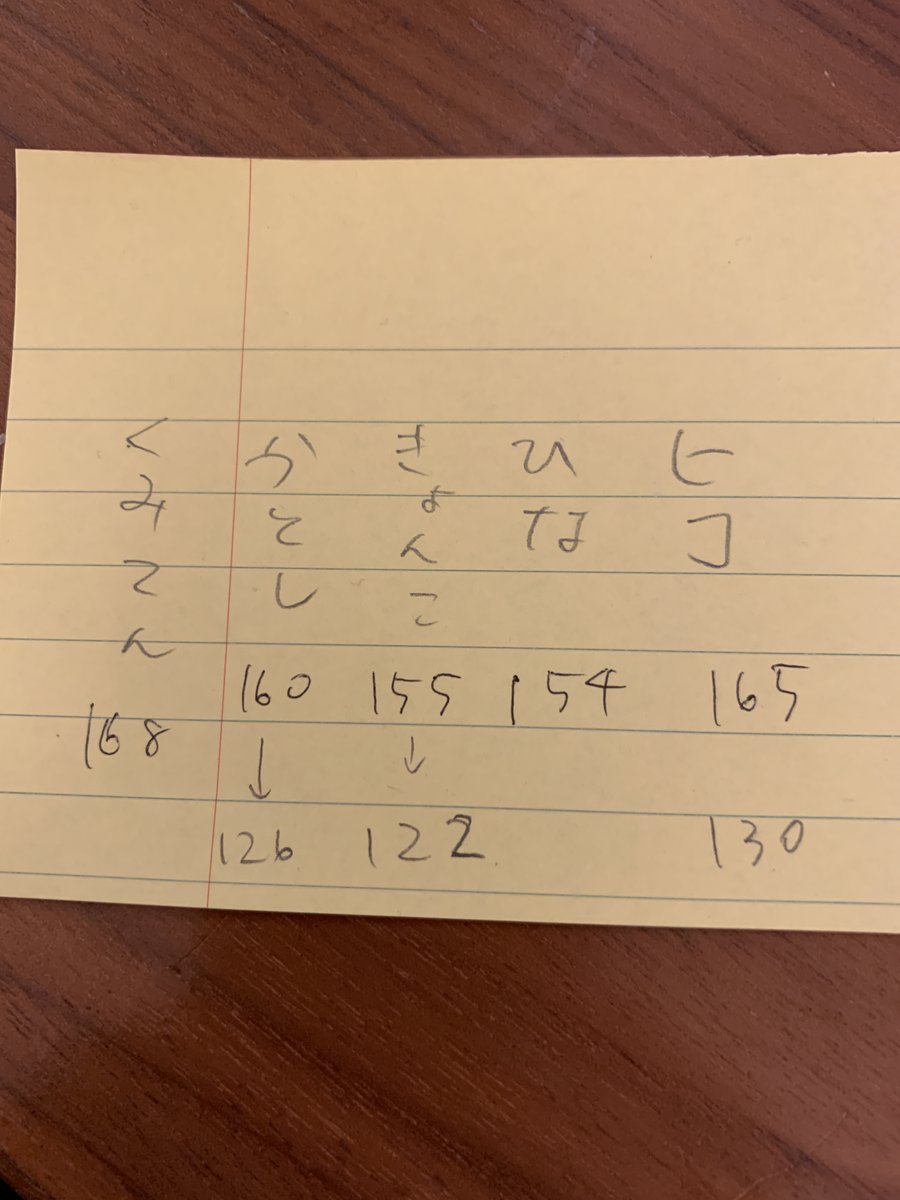 くみてん
かとし
きょんこ
ひな
ヒコ
168
160
155
154
165
↓
↓
126
122
130